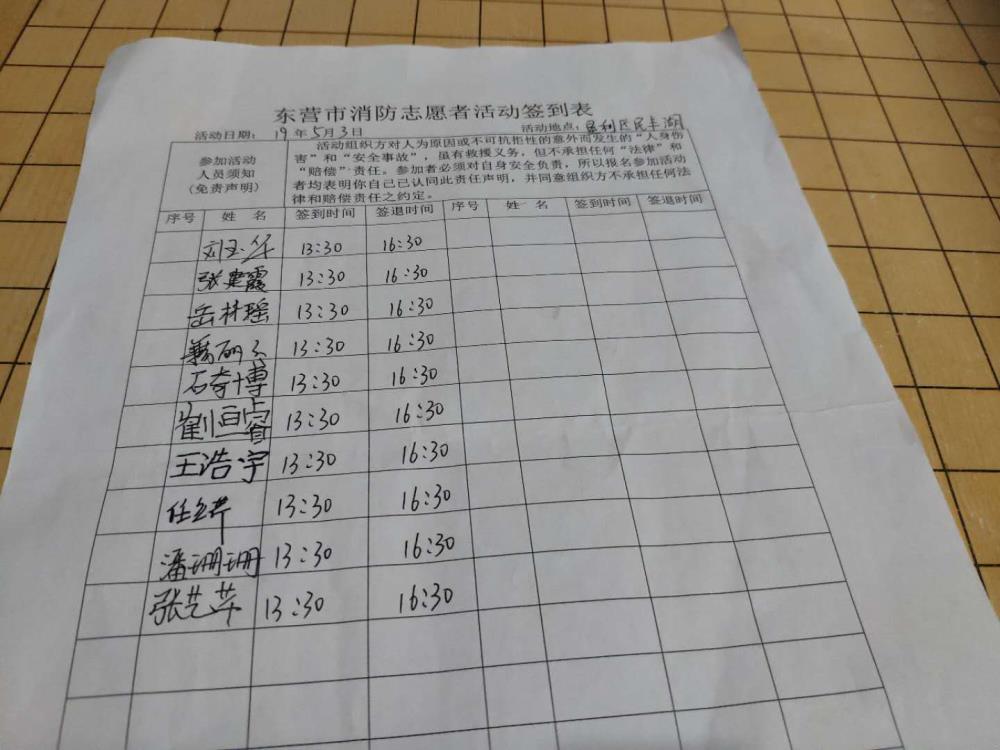 东营市消防志愿者活动签到表
活动日期： 19 年 5 月 3 日 活动地点：垦利区民丰湖
参加活动
人员须知
(免责声明)
活动组织方对人为原因或不可抗拒性的意外而发生的“人身伤
害”和“安全事故”，虽有救援义务，但不承担任何“法律”和
“赔偿”责任。参加者必须对自身安全负责，所以报名参加活动
者均表明你自己已认同此责任声明，并同意组织方不承担任何法
律和赔偿责任之约定。
序号 姓 名 签到时间 签退时间 序号 姓 名 签到时间 签退时间
刘玉华 13:30 16:30
张建霞 13:30 16:30
岳林瑶 13:30 16:30
13:30 16:30
石奇博 13:30 16:30
13:30 16:30
王浩宇 13:30 16:30
13:30 16:30
潘珊珊 13:30 16:30
张艺萍 13:30 16:30